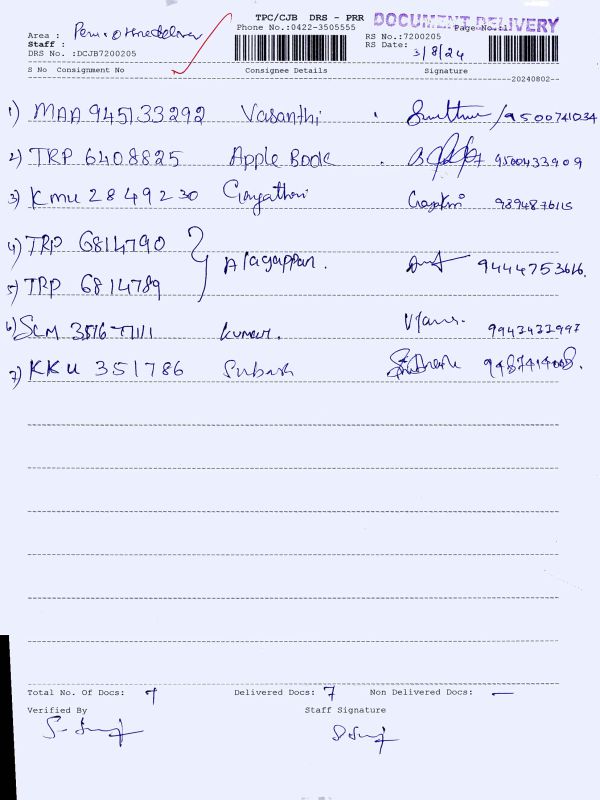 TPC/CJB DRS - PRR DOCUMENT DELIVERY
Area : Phone No.:0422-3505555 Page No.:1
Staff : RS No.:7200205
DRS No. :DCJB7200205 RS Date: 3/8/24
S No Consignment No Consignee Details Signature
20240802
1) MAA 945133292 Vasanthi /9500741034
2) TRP 6408825 Apple Book 9500433909
3) Kmu 2849230 Gayathri Gayathri 9894876115
4) TRP 6814790
Alagappan. 9444753616.
5) TRP 6814789
6) SLM Kumar. 9943433997
7) KKU 351786 Subash
Total No. Of Docs: 7 Delivered Docs: 7 Non Delivered Docs: —
Verified By Staff Signature